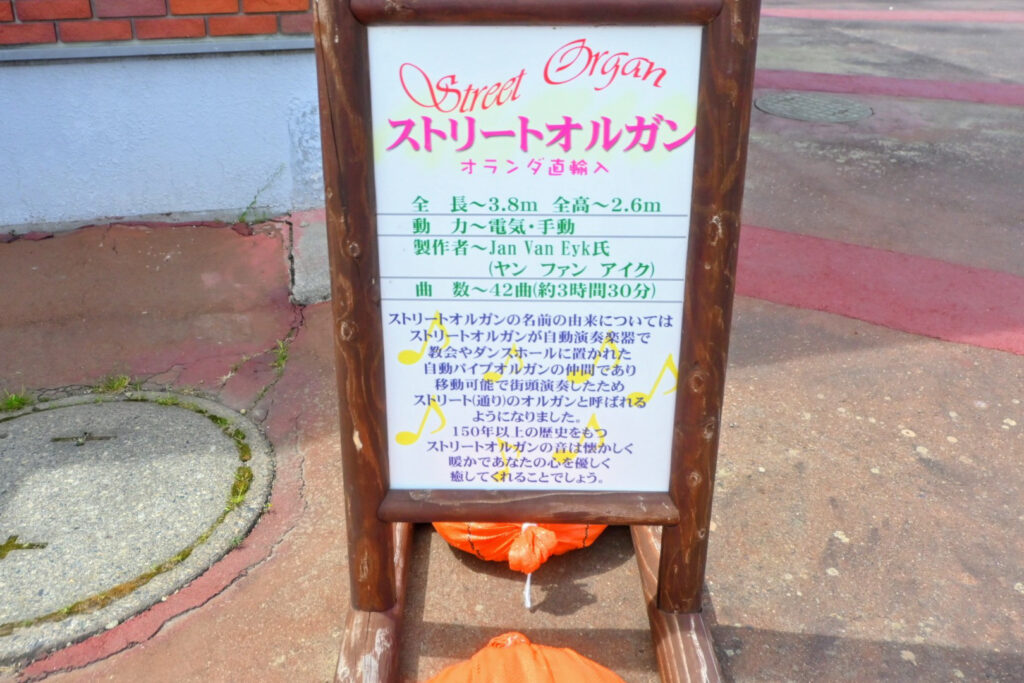 Street Organ
ストリートオルガン
オランダ直輸入
全 長～3.8m 全高～2.6m
動 力～電気・手動
製作者～Jan Van Eyk氏
(ヤン ファン アイク)
曲 数～42曲(約3時間30分)
ストリートオルガンの名前の由来については
ストリートオルガンが自動演奏楽器で
教会やダンスホールに置かれた
自動パイプオルガンの仲間であり
移動可能で街頭演奏したため
ストリート(通り)のオルガンと呼ばれる
ようになりました。
150年以上の歴史をもつ
ストリートオルガンの音は懐かしく
暖かであなたの心を優しく
癒してくれることでしょう。